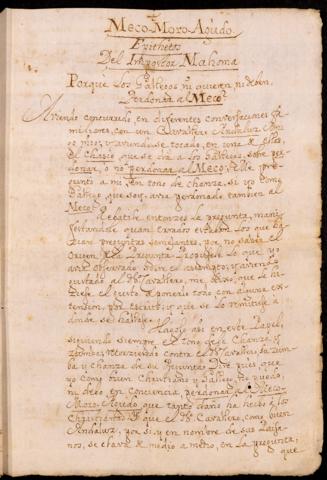 Meco-Moro-Agudo
Epithetos
Del Impostor Mahoma
Porque los Gallegos ni quieren, ni deben,
Perdonar al Meco.
Aviendo concurrido en diferentes conversaciones fa-
miliares, con un Cavallero Andaluz Ami-
go mio, y aviendose tocado, en una de ellas,
el Chasco que se da a los Gallegos, sobre per-
donar, o no perdonar al Meco; Me pre-
gunto a mi, en tono de chanza, si yo como
Gallego que soy, avia perdonado tambien al
Meco?
Rebatile entonzes la pregunta, mani-
festandole quan errados estaban los que ha-
cian preguntas semejantes, por no saber el
origen de la Pregunta. Propusele lo que yo
avia observado sobre el assumpto; y aviendo
gustado al Cavallero, me dixo, que le hi-
ziese el gusto de ponerle esto con alguna ex-
tension, por escrito; y que se lo remitiese a
donde se hallase.
Hagolo asi en este Papel,
siguiendo siempre el tono de la Chanza, y
zumba; rebolviendo contra el Cavallero, la zum-
ba y chanza de su pregunta. Dixe pues, que
yo como buen Christiano y Gallego, ni puedo,
ni debo, en conciencia, perdonar al Meco-
Moro-Agudo, que tanto daño ha hecho a los
Christianos. Y que el Cavallero, como buen
Andaluz, por si, y en nombre de sus Paisa-
nos, se clava de medio a medio, en la pregunta,
que